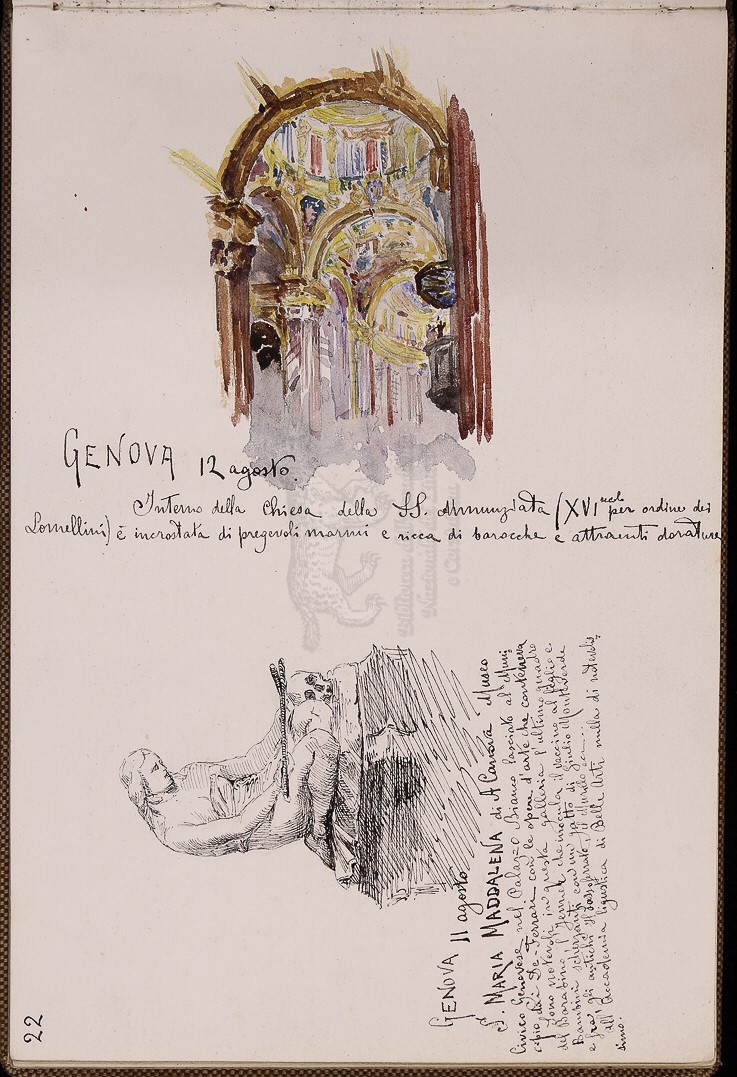 GENOVA 12 agosto.
Interno della Chiesa della SS. Annunziata (XVI secolo per ordine dei
Lomellini) è incrostata di pregevoli marmi e ricca di barocche e attraenti dorature
GENOVA 11 agosto
S. MARIA MADDALENA di A Canova Museo
Civico Genovese nel Palazzo Bianco lasciato al Muni
cipio dai De-Ferrari con le opere d'arte che conteneva
Sono notevoli in questa galleria l'ultimo quadro
del Barabino, l'Jenner che inocula il vaccino al figlio e
Bambini scherzanti con un gatto di Giulio Monteverde
e fra gli antichi il Sassoferrato, il Murillo
all'Accademia ligustica di Belle Arti nulla di notevolis
simo.
22